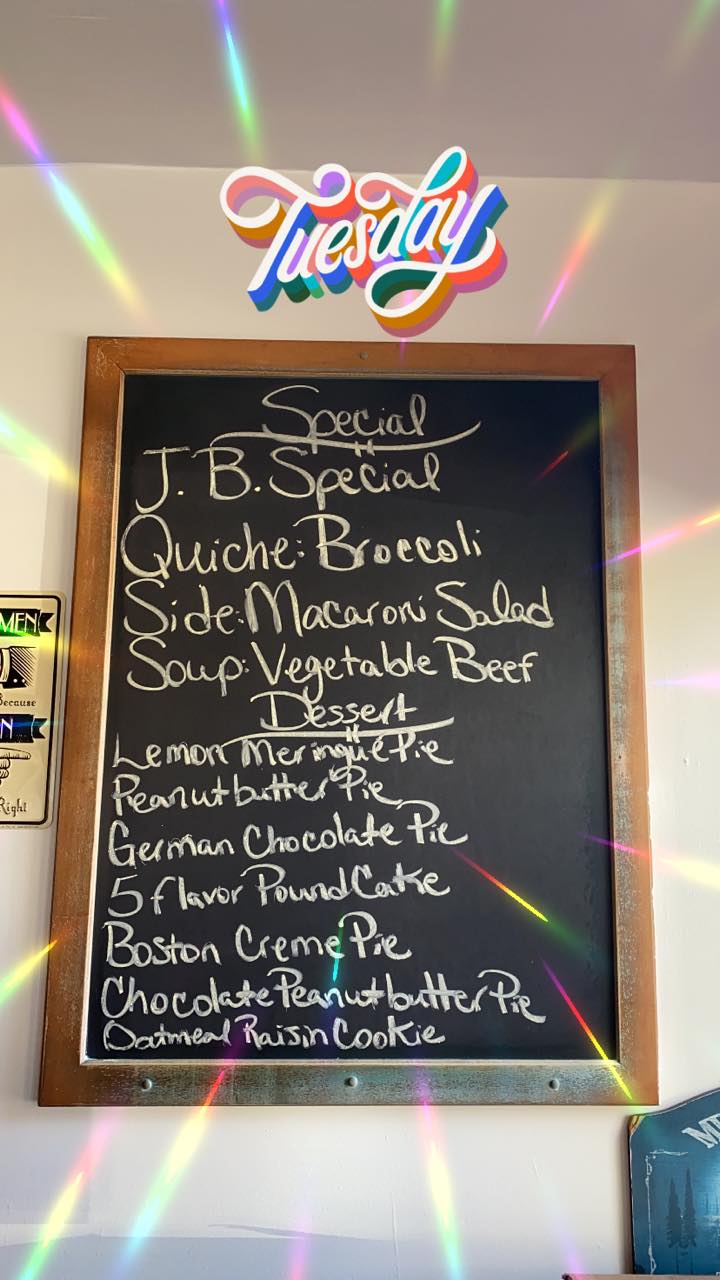 Tuesday
Special
J. B. Special
Quiche: Broccoli
Side: Macaroni Salad
Soup: Vegetable Beef
Dessert
Lemon Meringue Pie
Peanutbutter Pie
German Chocolate Pie
5 flavor Pound Cake
Boston Creme Pie
Chocolate Peanutbutter Pie
Oatmeal Raisin Cookie
MEN
Because
N
Right
M